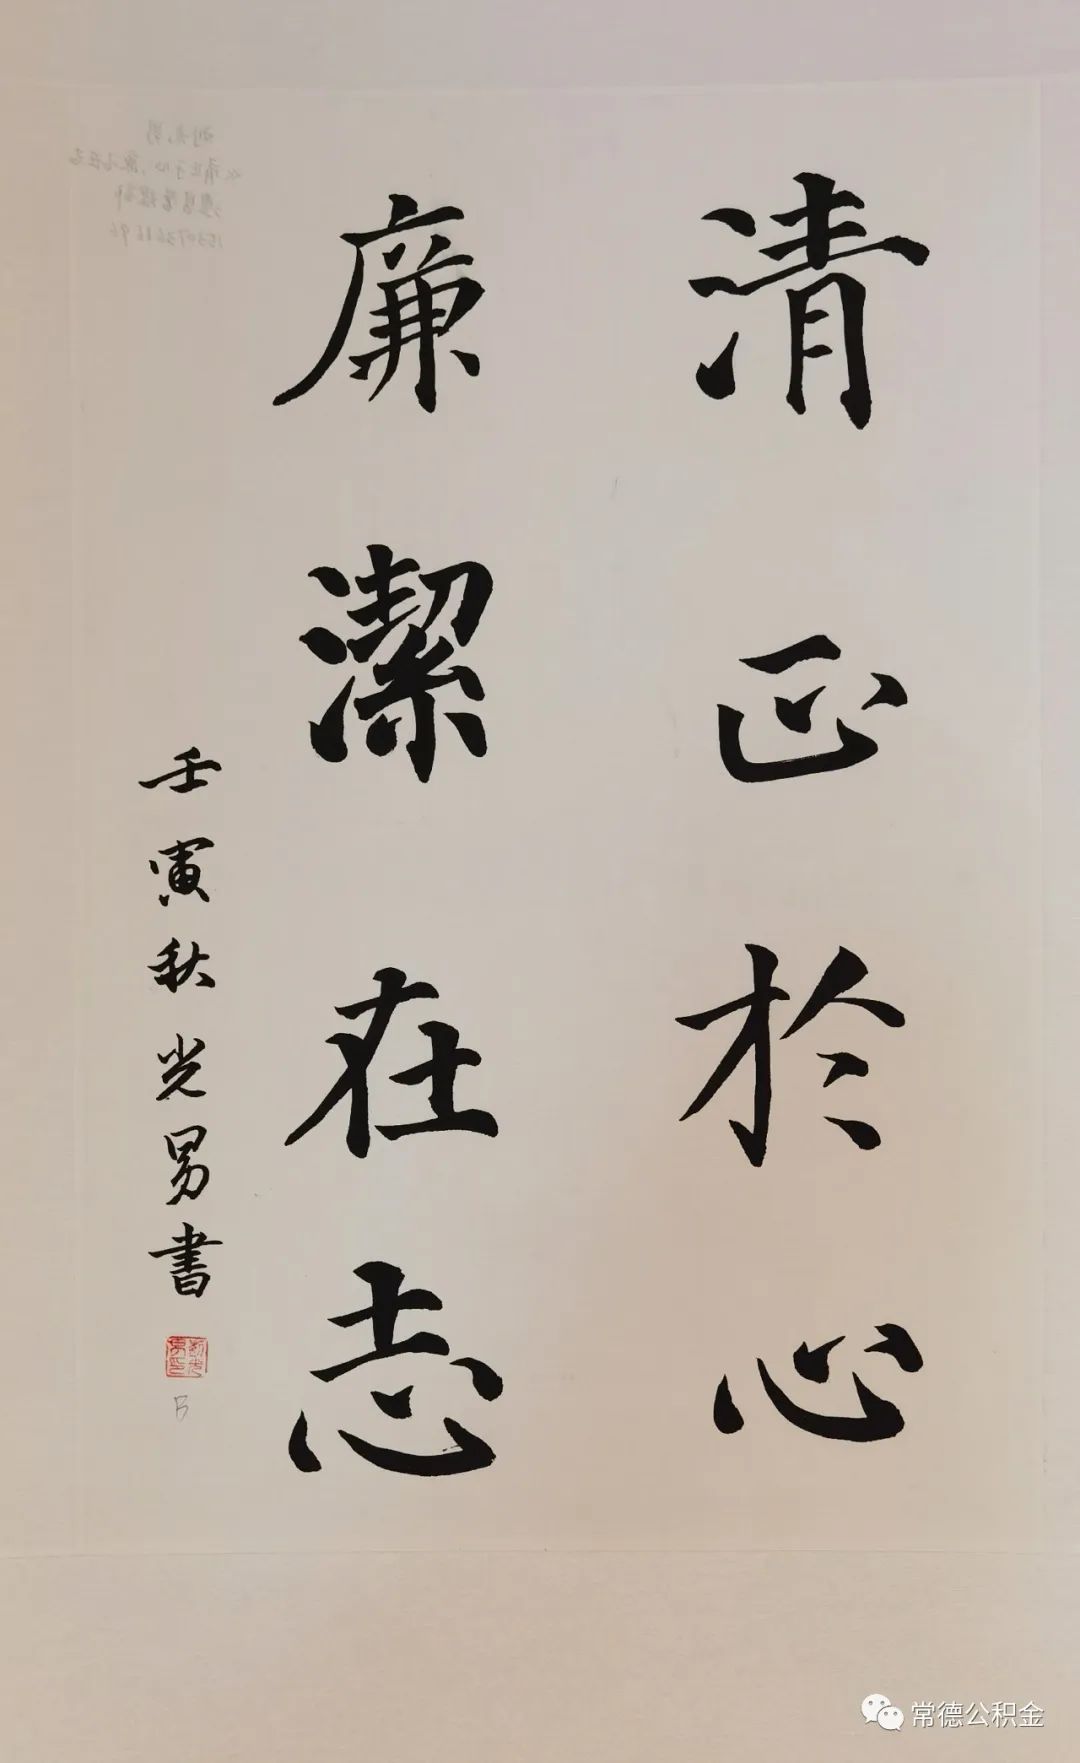 清正於心
廉潔在志
壬寅秋光男書
常德公积金